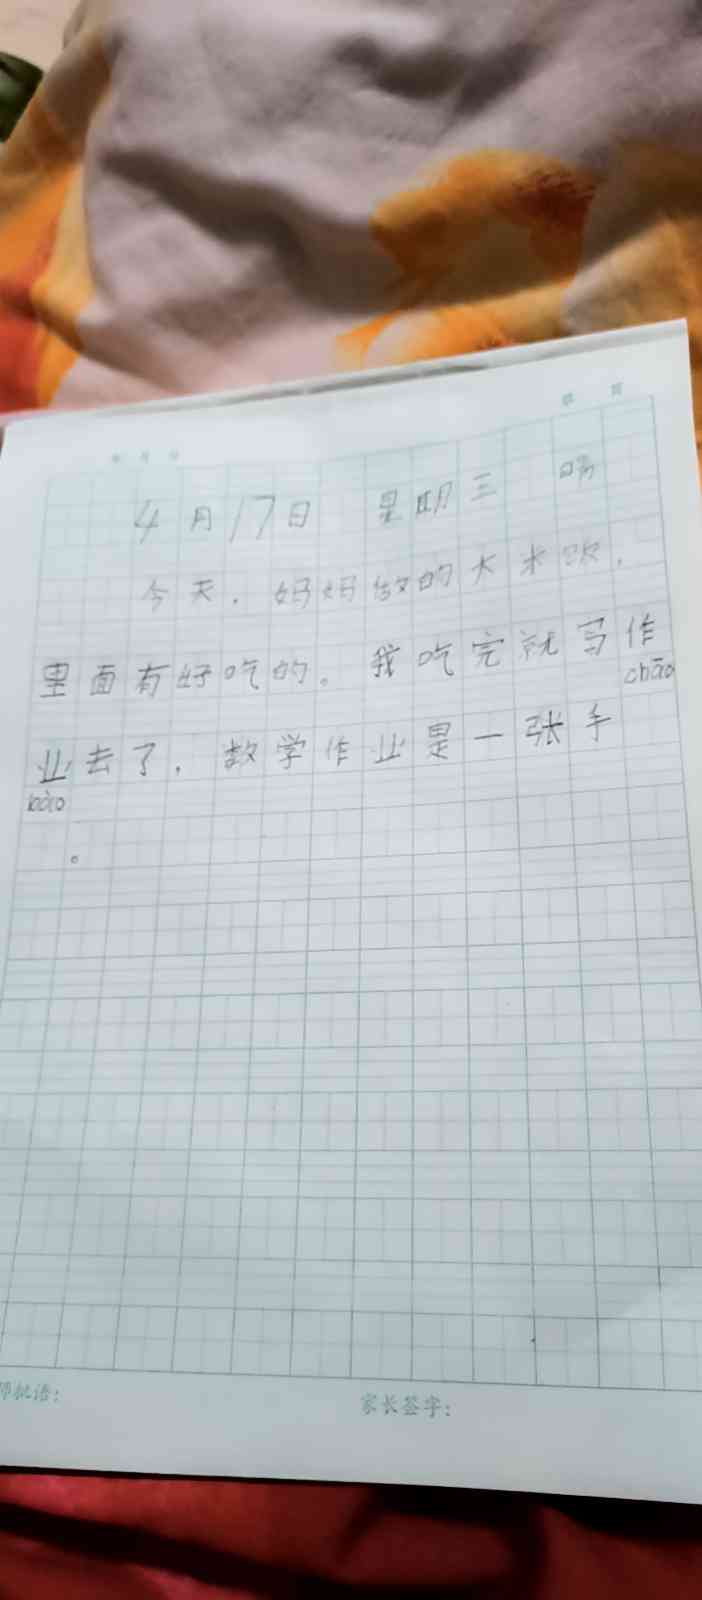 4月17日 星期三 晴
今天,妈妈做的大米饭,
里面有好吃的。我吃完就写作
chāo
业去了,数学作业是一张手
bào
。
师批语:
家长签字: